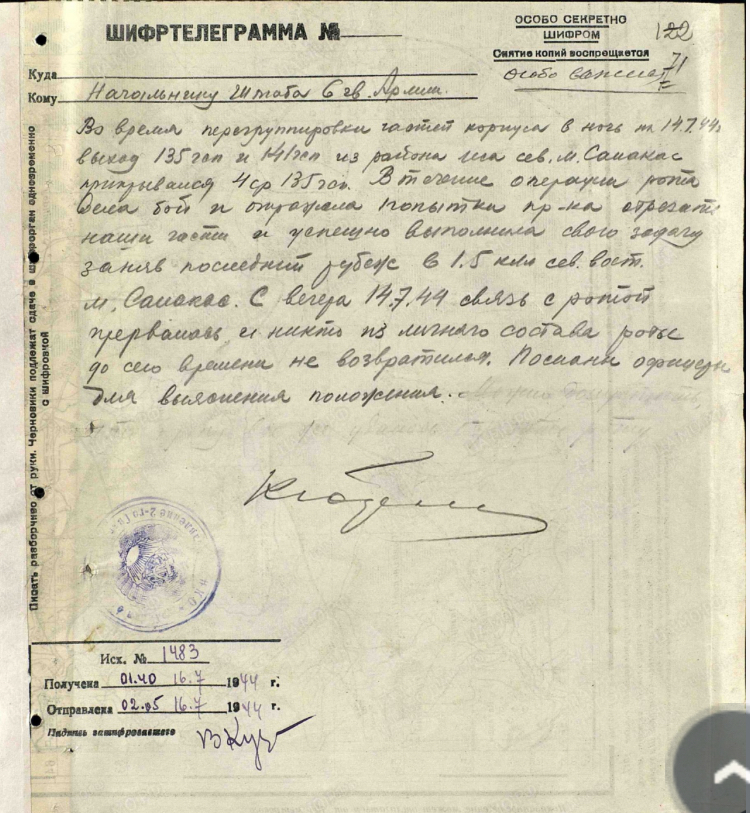 ШИФРТЕЛЕГРАММА №
ОСОБО СЕКРЕТНО
ШИФРОМ
Снятие копий воспрещается
122
71
Особо важная
Куда
Кому Начальнику Штаба 6 гв. Армии.
Во время перегруппировки частей корпуса в ночь на 14.7.44г.
выход 135 гсп и 141 гсп из района леса сев. м. Самакас
прикрывался 4 ср 135 гсп. В течение операции рота
вела бой и отражала попытки пр-ка отрезать
наши части и успешно выполнила свою задачу
заняв последний рубеж в 1.5 клм сев. вост.
м. Самакас. С вечера 14.7.44 связь с ротой
прервалась и никто из личного состава роты
до сего времени не возвратился. Посланы офицеры
для выяснения положения.
Писать разборчиво от руки. Черновики подлежат сдаче в шифрорган одновременно
с шифровкой
Исх. № 1483
Получена 01.40 16.7 1944 г.
Отправлена 02.05 16.7 1944 г.
Подпись зашифровавшего